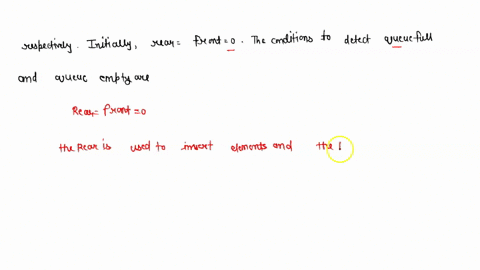 respectively. Initially, rear= front=0. The conditions to detect queue full
and queue empty are
Rear=front=0
the Rear is used to insert elements and the